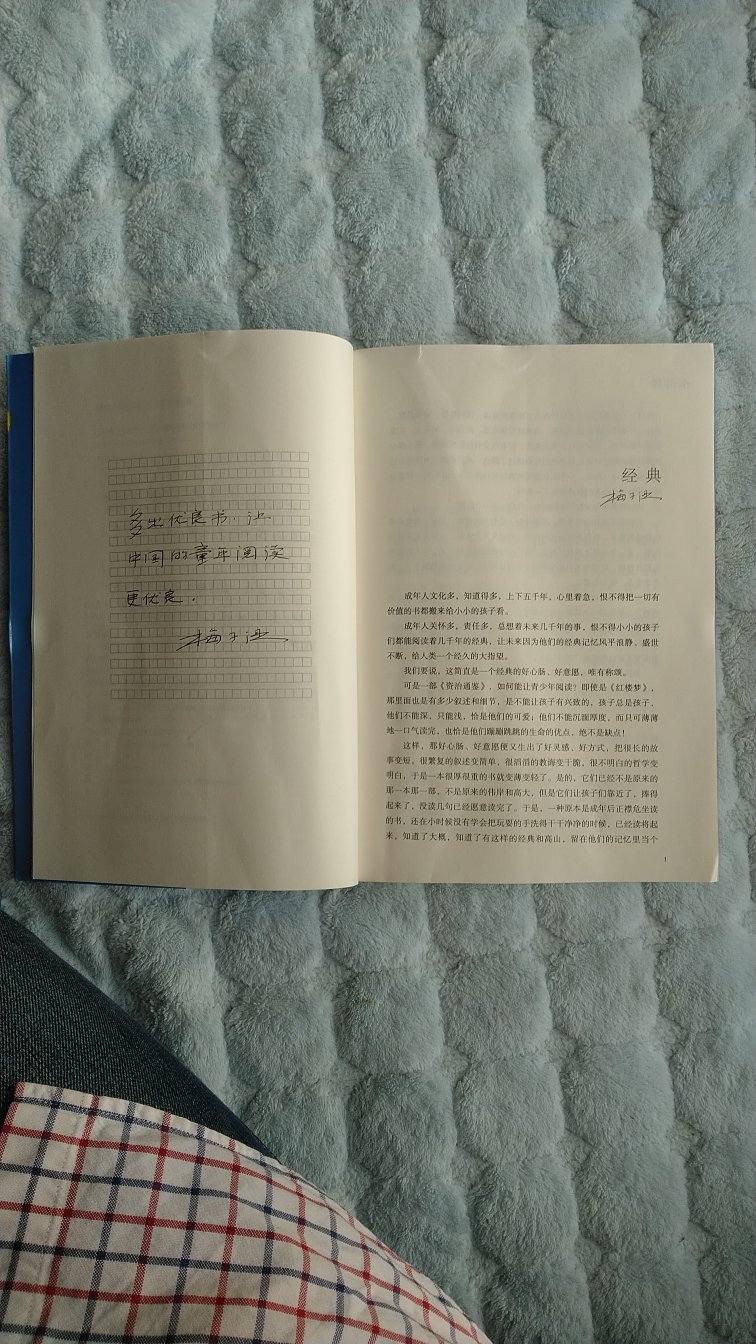 多出优良书，让
中国的童年阅读
更优良.
梅子涵
经典
梅子涵
成年人文化多，知道得多，上下五千年，心里着急，恨不得把一切有
价值的书都搬来给小小的孩子看。
成年人关怀多，责任多，总想着未来几千年的事，恨不得小小的孩子
们都能阅读着几千年的经典，让未来因为他们的经典记忆风平浪静、盛世
不断，给人类一个经久的大指望。
我们要说，这简直是一个经典的好心肠、好意愿，唯有称颂。
可是一部《资治通鉴》，如何能让青少年阅读？即使是《红楼梦》，
那里面也是有多少叙述和细节，是不能让孩子有兴致的，孩子总是孩子，
他们不能深，只能浅，恰是他们的可爱；他们不能沉湎厚度，而只可薄薄
地一口气读完，也恰是他们蹦蹦跳跳的生命的优点，绝不是缺点！
这样，那好心肠、好意愿便又生出了好灵感、好方式，把很长的故
事变短，很繁复的叙述变简单，很滔滔的教诲变干脆，很不明白的哲学变
明白，于是一本很厚很重的书就变薄变轻了。是的，它们已经不是原来的
那一本那一部，不是原来的伟岸和高大，但是它们让孩子们靠近了，捧得
起来了，没读几句已经愿意读完了。于是，一种原本是成年后正襟危坐读
的书，还在小时候没有学会把玩耍的手洗得干干净净的时候，已经读将起
来，知道了大概，知道了有这样的经典和高山，留在他们的记忆里当个
1